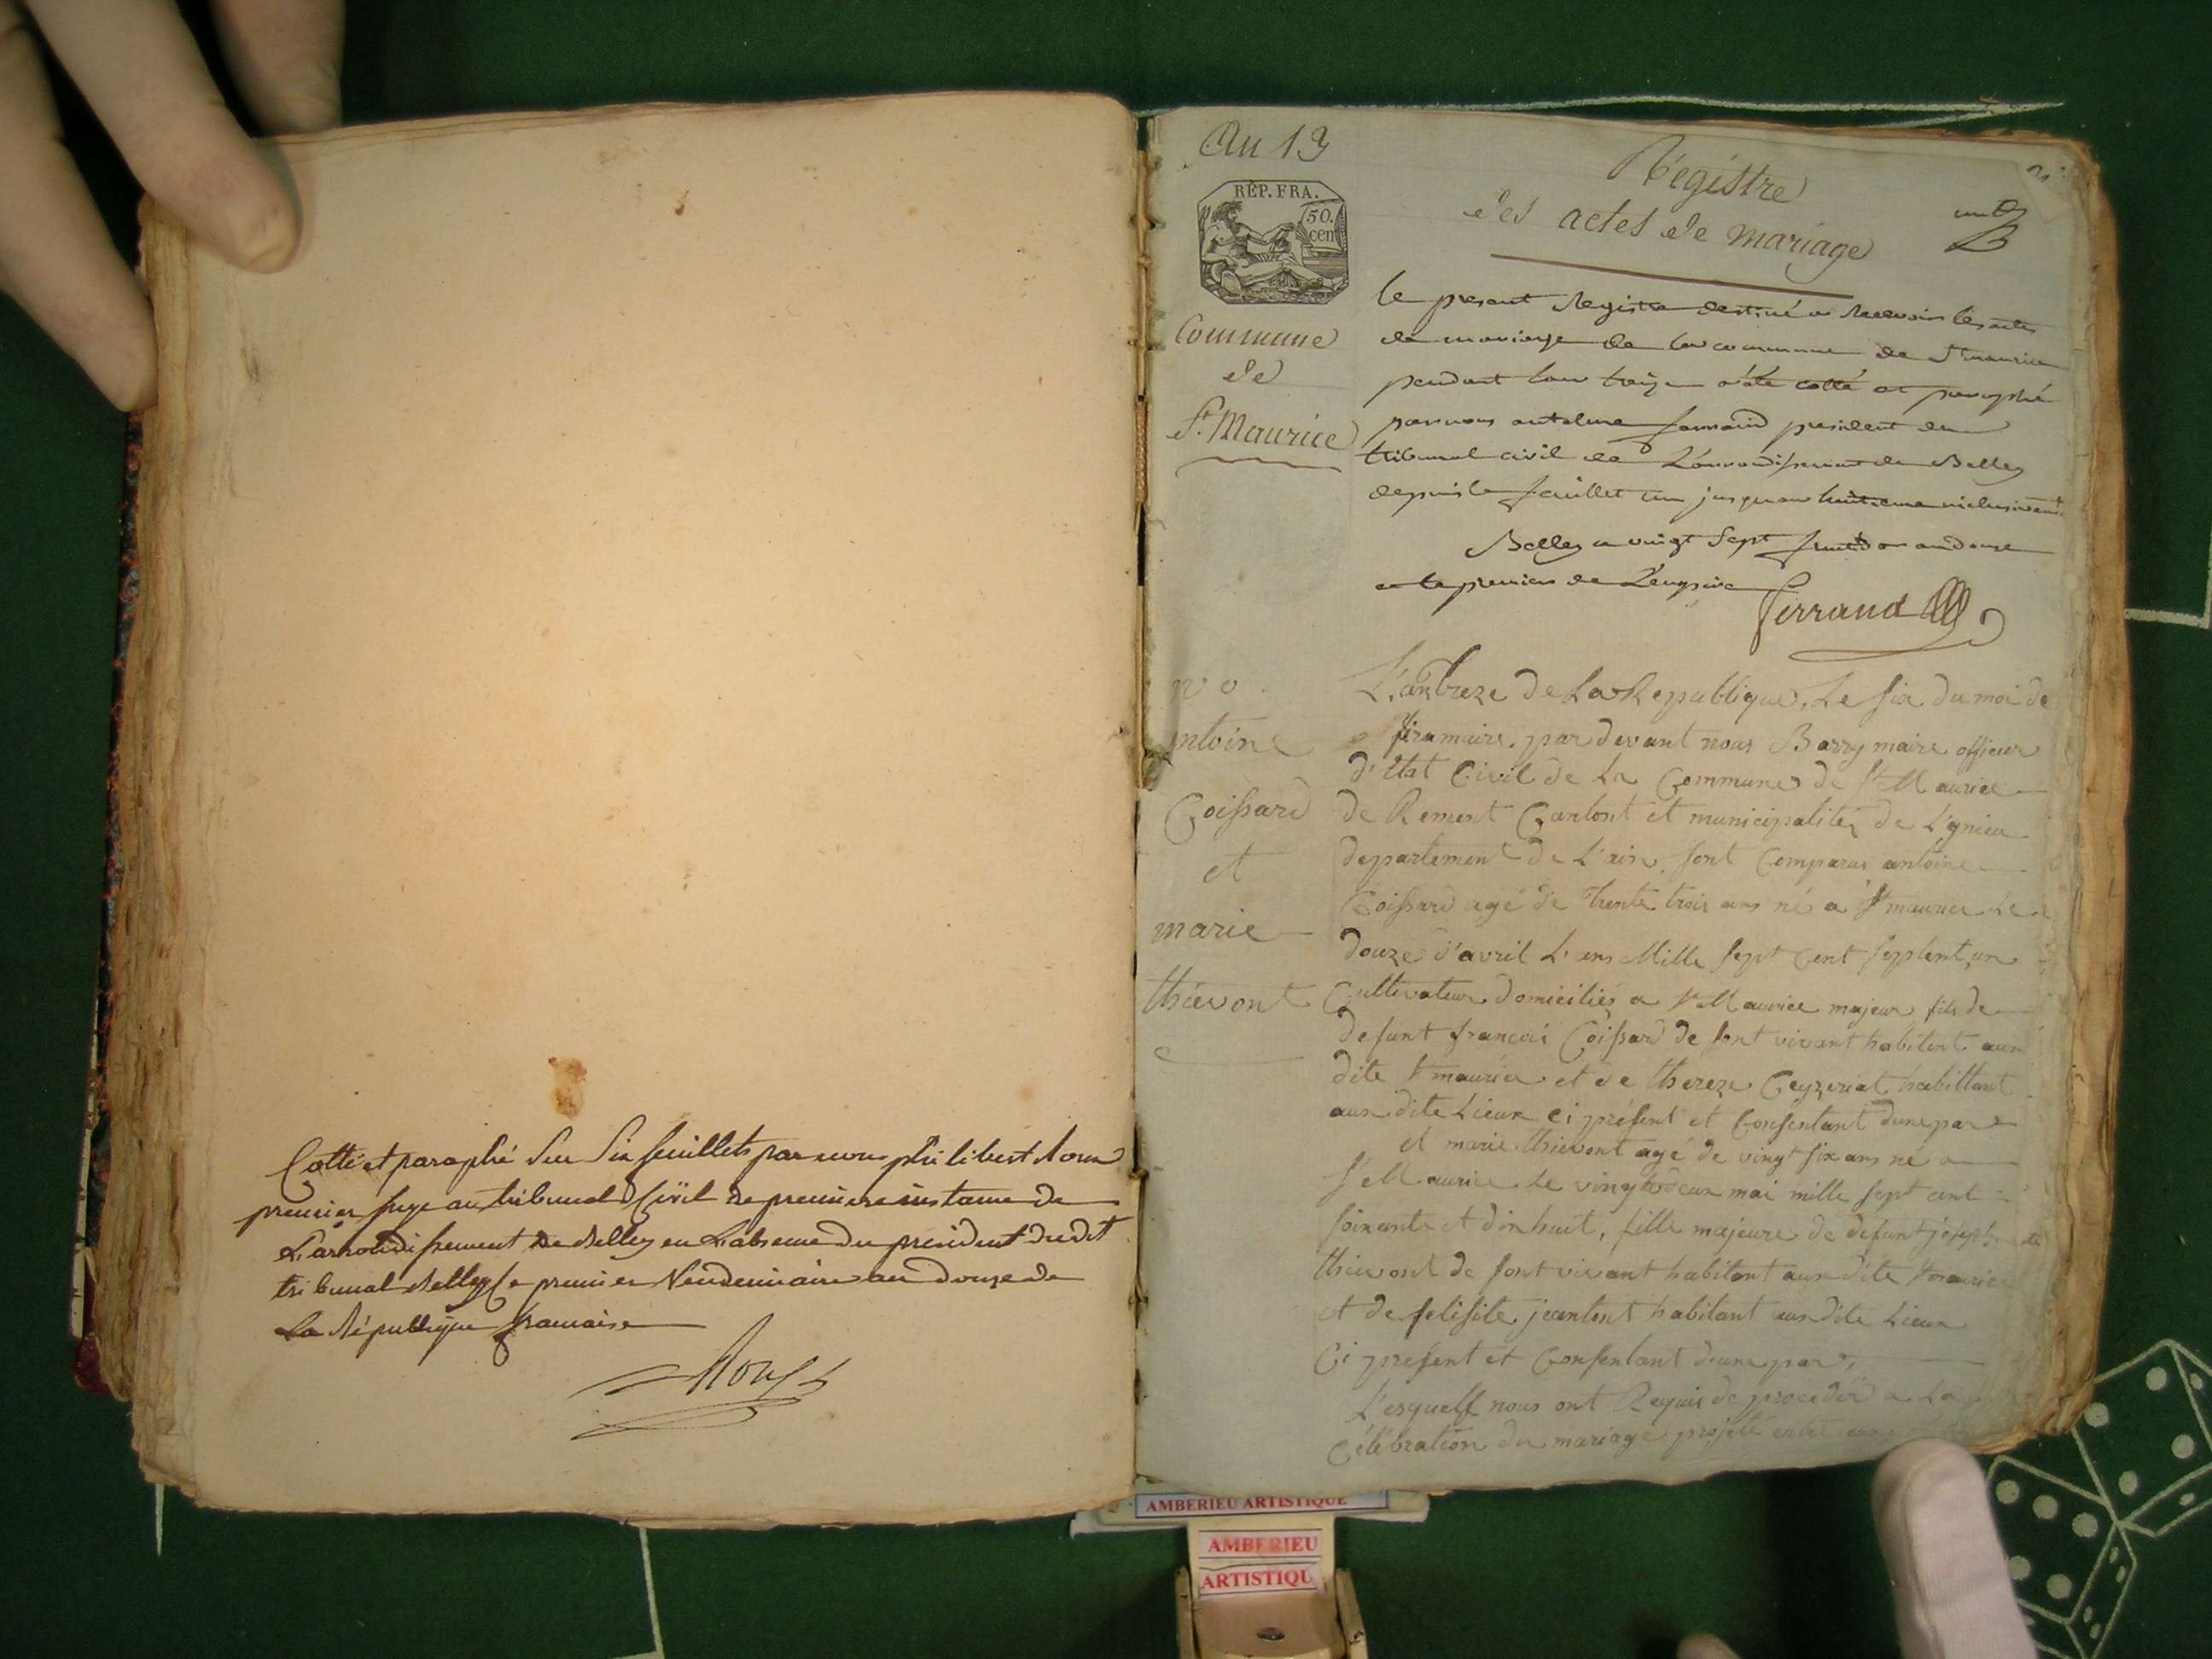 Cotté et paraphé Sur Six feuillets par nous philibert Roux
premier Juge au tribunal Civil de premiere instance de
L'arrondissement de Belley en L'absence du president dudit
tribunal Belley Le premier Vendemiaire an Douze de
La République francaise
Roux
An 13
RÉP. FRA.
50.
cen
Commune
de
St. Maurice
Régistre
des actes de mariage
un
le present Registre destiné a Recevoir les actes
de mariage de la commune de St maurice
pendant l'an treize a été cotté et paraphé
par nous antelme ferrand president du
tribunal civil de L'arrondissement de Belley
depuis le feuillet un jusqu'au huitieme inclusivemt.
Belley a vingt Sept fructidor an douze
et le premier de L'empire
ferrand
no
ntoine
Coissard
et
marie
thievont
L'an treze de La Republique, Le six du moi de
frimaire, par devant nous Barry maire officier
d'Etat Civil de La Commune de St Maurice
de Rement Cantont et municipalité de Lignieu
departement de L'ain, sont Comparus antoine
Coissard agé de trente trois ans né a St maurice Le
douze d'avril L'ans Mille sept Cent septent un
Cultivateur domiciliés a St Maurice majeur fils de
defunt françois Coissard de sont vivant habitent aux
dite St maurice et de thereze Ceyzeriat habittant
aux dite Lieux ci présent et Consentant d'une part
et marie thievont agé de vingt six ans né a
St Maurice Le vingt deux mai mille sept cent
soixante et dix huit, fille majeure de defunt joseph
thievont de sont vivant habitant aux dite St maurice
et de felisite jeantont habitant aux dite Lieux
Ci present et Consentant d'une part,
L'esquelf nous ont Requis de procedér a La
Célébration du mariage projété entre eux
AMBERIEU ARTISTIQUE
AMBERIEU
ARTISTIQU